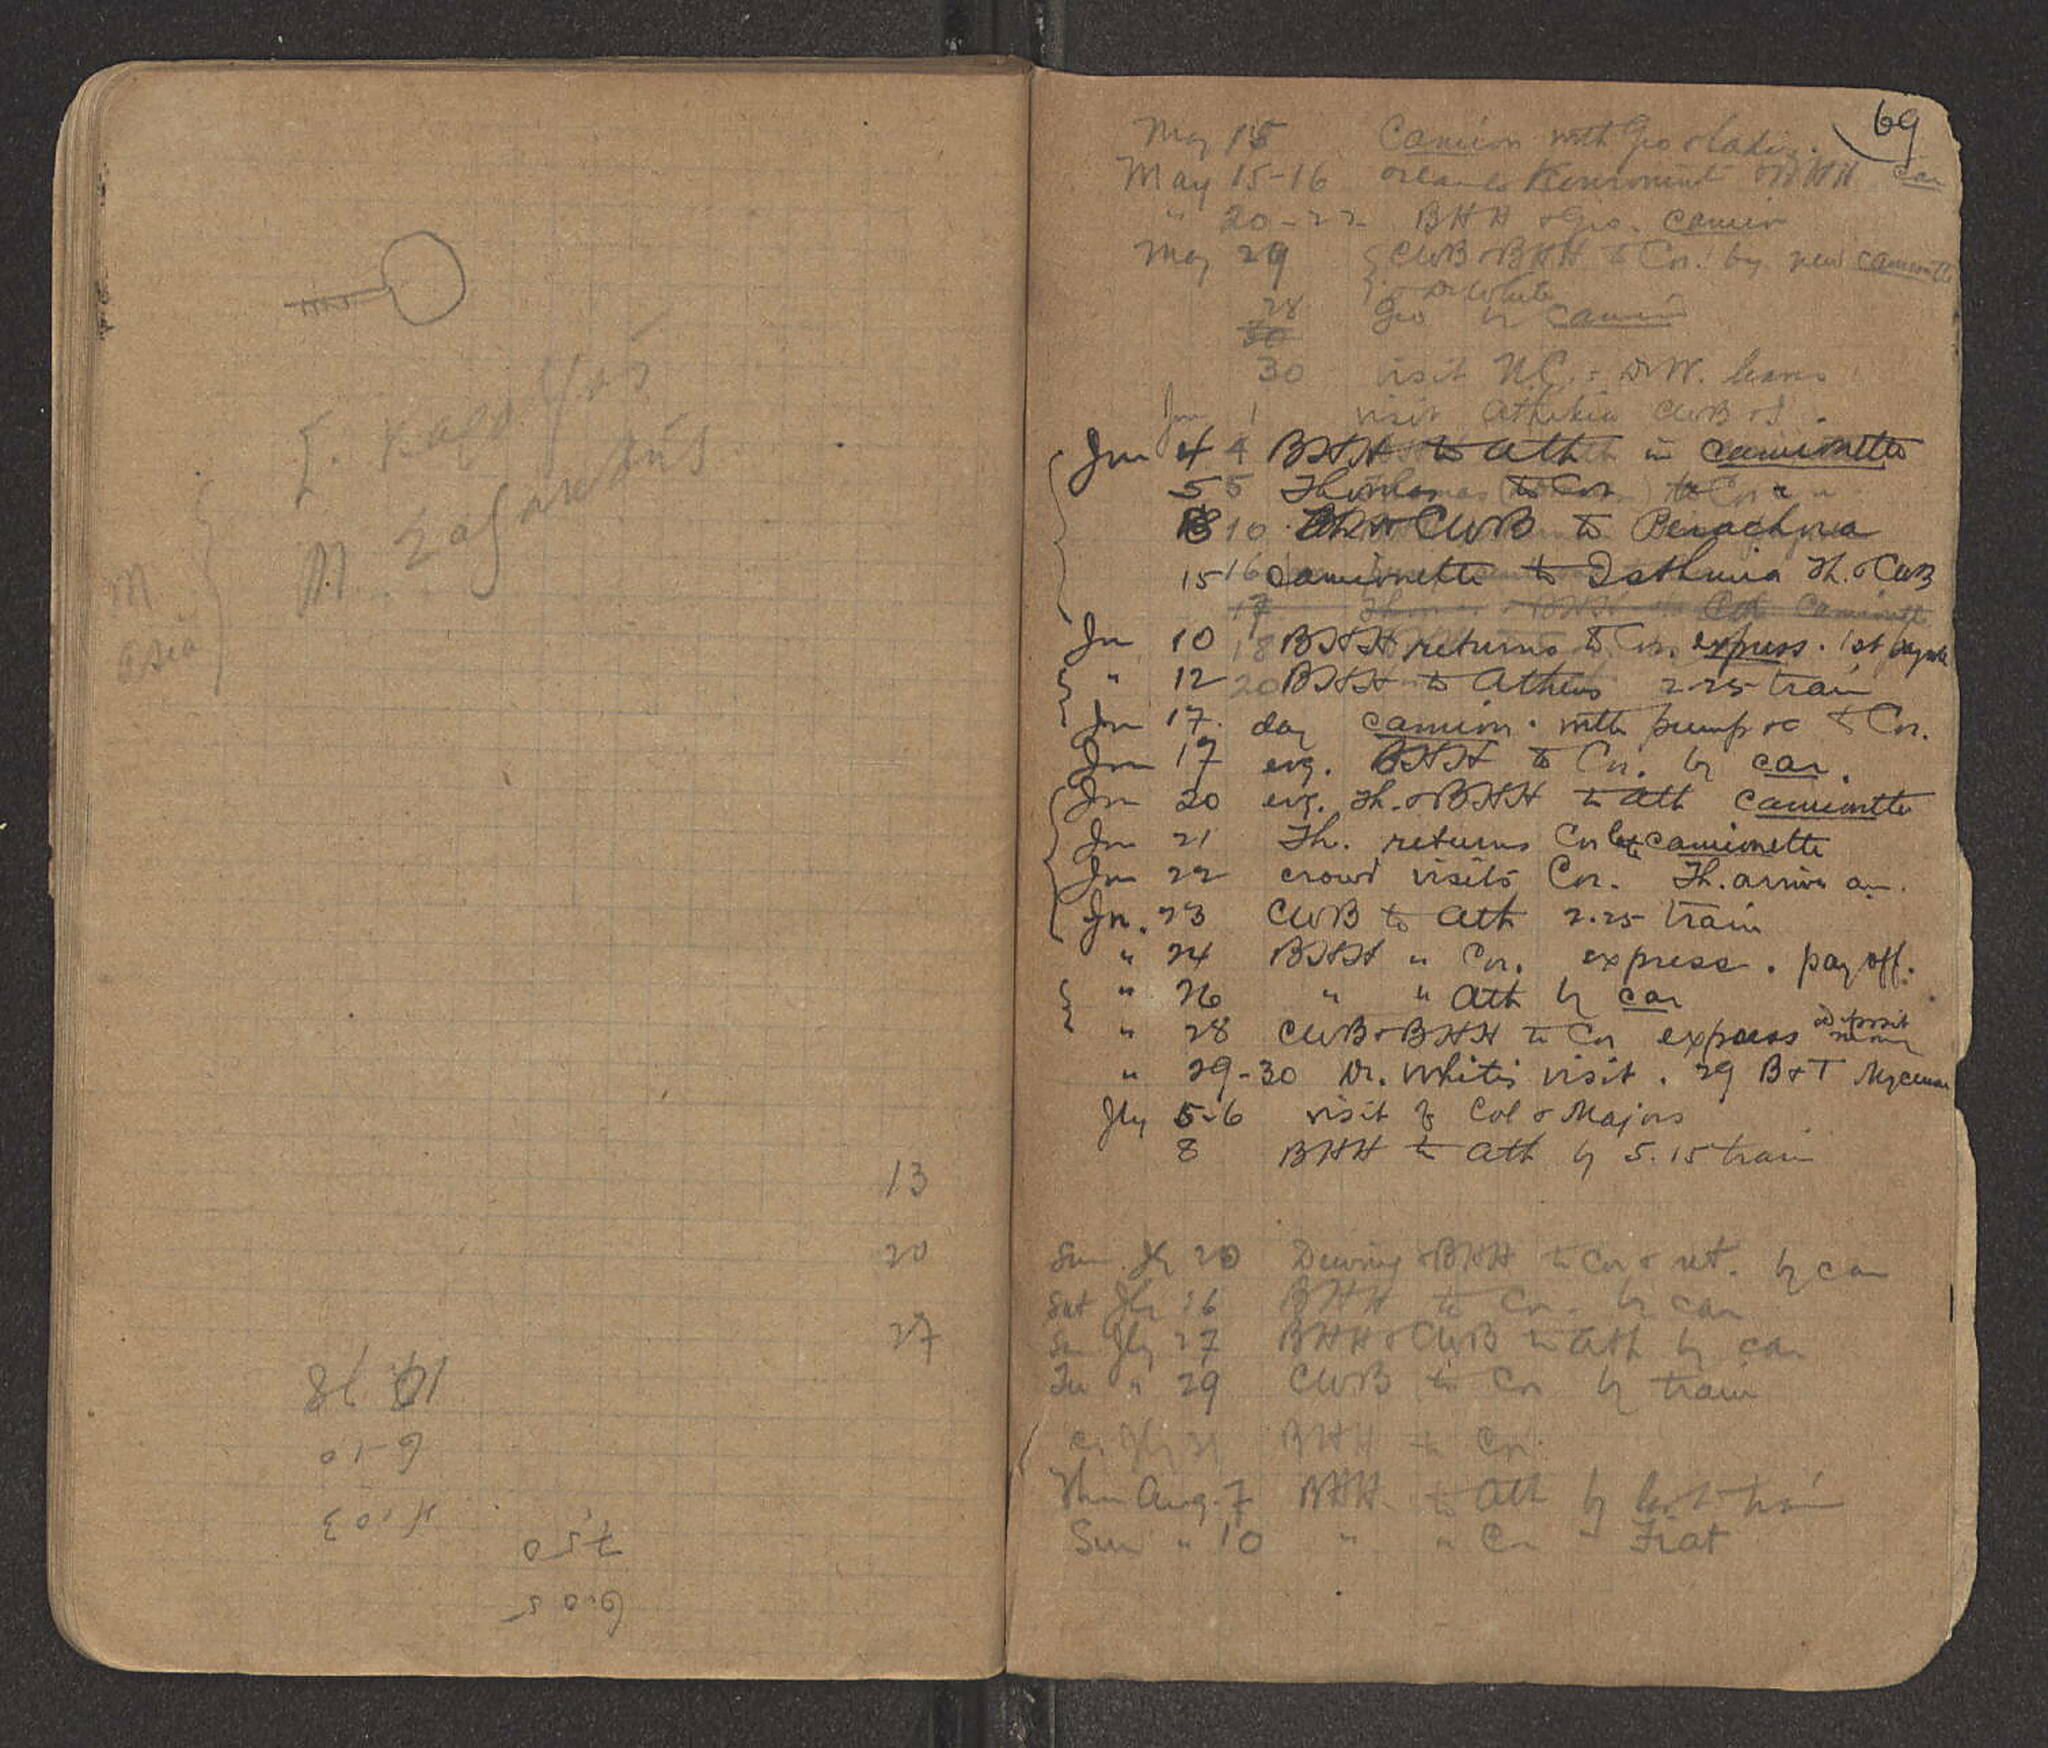 M
Asia
13
20
27
10.78
6-10
4.03
7.50
6.05
69
May 15 Camion with Geo & Lading.
May 15-16 & BHH car
" 20-22 BHH & Geo. camion
May 29 CWB & BHH to Cor. by new camionette
& Dr White
28 Geo by camion
30
30 visit N.C. Dr W. leaves
Jun 1 visit Athikia CWB & J.
Jun 4 4 BHH to Ath in camionette
5 5 Thomas to Cor
10 CWB to Perachora
15 16 camionette to Isthmia Th. & CWB
17 Thomas & BHH to Ath camionette
Jn 10 18 BHH returns to Cor. express. 1st
" 12 20 BHH to Athens 2.25 train
Jun 17. day camion. with pump &c to Cor.
Jun 17 evg. BHH to Cor. by car.
Jun 20 evg. Th. & BHH to Ath camionette
Jun 21 Th. returns Cor by camionette
Jun 22 crowd visits Cor. Th. arrive am.
Jn. 23 CWB to Ath 2.25 train
" 24 BHH " Cor. express. pay off.
" 26 " " Ath by car
" 28 CWB & BHH to Cor express deposit money
" 29-30 Dr. White's visit. 29 B & T Mycenae
Jly 5-6 visit of Col & Majors
8 BHH to Ath by 5.15 train
Sun. Jly 20 Dewing & BHH to Cor & ret. by car
Sat Jly 26 BHH to Cor. by car
Su Jly 27 BHH & CWB to Ath by car
Tu " 29 CWB to Cor by train
c. Jly 31 BHH to Cor.
Thu Aug. 7 BHH to Ath by last train
Sun " 10 " " Cor " Fiat